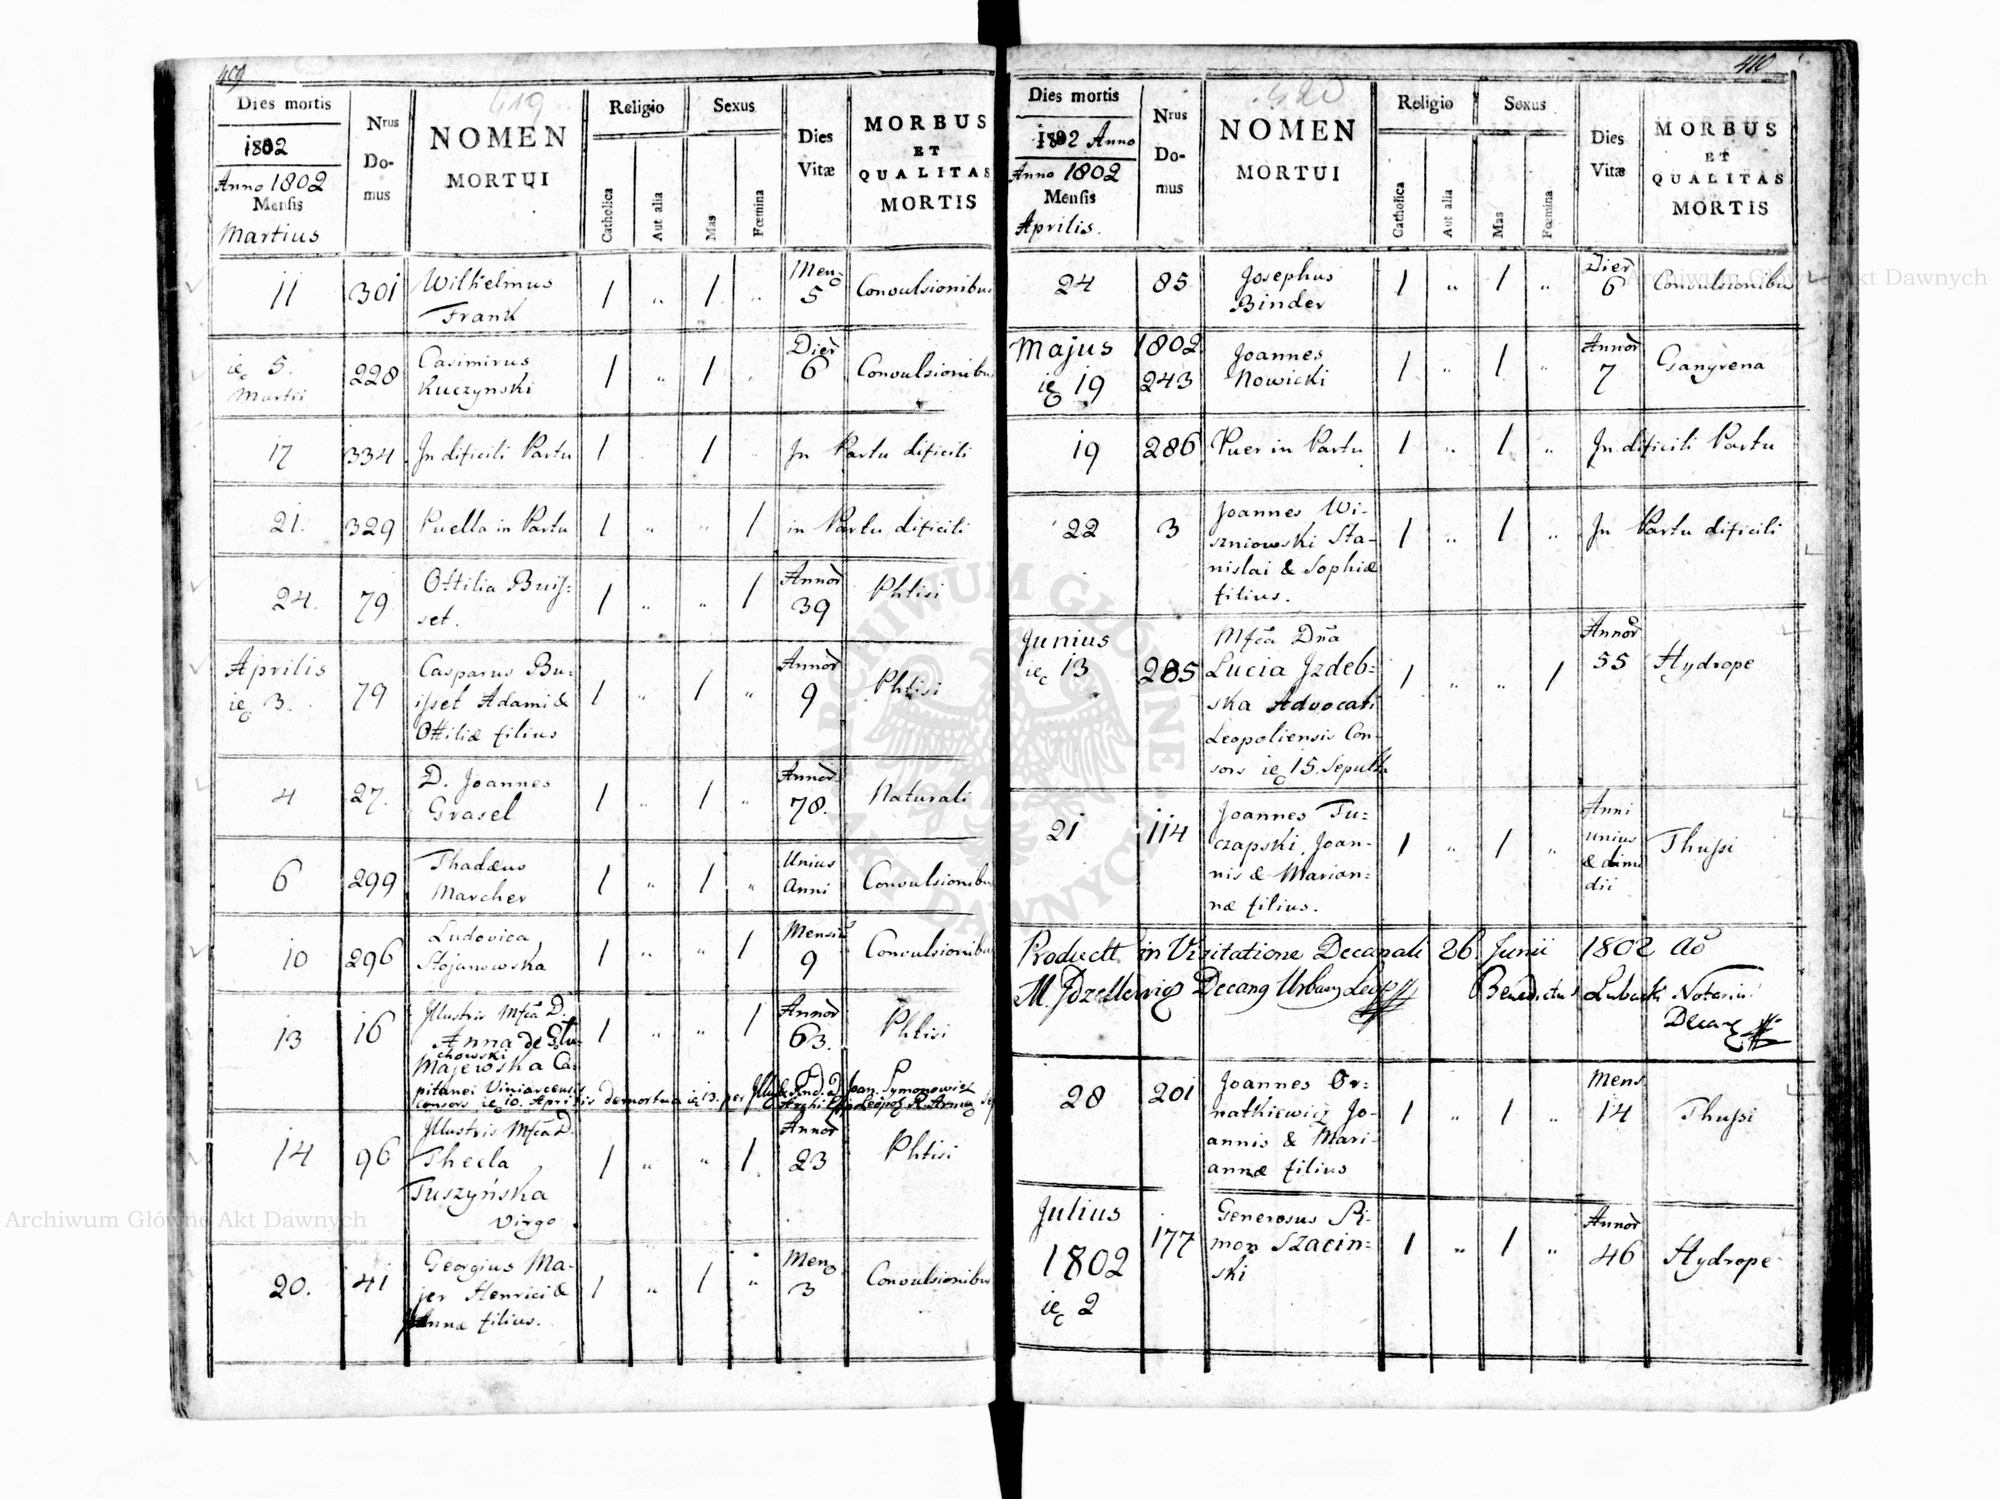 409
Dies mortis
1802
Anno 1802
Mensis
Martius
Nrus
Do-
mus
419
NOMEN
MORTUI
Religio
Catholica
Aut alia
Sexus
Mas
Fœmina
Dies
Vitæ
MORBUS
ET
QUALITAS
MORTIS
11 301 Wilhelmus Frank 1 „ 1 „ Mens 5 Convulsionibus
ie 5. Martii 228 Casimirus Kuczynski 1 „ 1 „ Dier 6 Convulsionibus
17 334 Jn dificili Partu 1 1 „ Jn Partu dificili
21. 329 Puella in Partu 1 „ „ 1 in Partu dificili
24. 79 Ottilia Buis=
set. 1 „ „ 1 Annor 39 Phtisi
Aprilis
ie 3. 79 Casparus Bu=
isset Adami &
Ottiliæ filius 1 „ 1 „ Annor 9 Phtisi
4 27. D. Joannes
Grasel 1 „ 1 „ Annor 78. Naturali
6 299 Thadæus
Marcher 1 „ 1 „ Unius Anni Convulsionibus
10 296 Ludovica
Stojanowska 1 „ „ 1 Mensiu 9 Convulsionibus
13 16 Jllustris Mfca D.
Anna de Glu=
chowski
Majewska Ca=
pitanei Viniarcensis
consors ie 10. Aprilis demortua ie 13. per Joan. Symonowicz
1 „ „ 1 Annor 63. Phtisi
14 96 Jllustris Mfca D.
Thecla
Tuszyńska
Virgo. 1 „ „ 1 Annor 23 Phtisi
20. 41 Georgius Ma=
jer Henrici &
Annæ filius. 1 „ 1 „ Mens 3 Convulsionibus
410
Dies mortis
1802 Anno
Anno 1802
Mensis
Aprilis.
Nrus
Do-
mus
420
NOMEN
MORTUI
Religio
Catholica
Aut alia
Sexus
Mas
Fœmina
Dies
Vitæ
MORBUS
ET
QUALITAS
MORTIS
24 85 Josephus
Binder 1 „ 1 „ Dier 6 Convulsionibus
Majus 1802
ie 19 243 Joannes
Nowicki 1 „ 1 „ Annor 7 Gangrena
19 286 Puer in Partu 1 „ 1 „ Jn dificili Partu
22 3 Joannes Wi-
szniowski Sta-
nislai & Sophiæ
filius. 1 „ 1 „ Jn Partu dificili
Junius
ie 13 285 Mfca Dna
Lucia Jzdeb=
ska Advocati
Leopoliensis Con-
sors ie 15. Sepulta 1 „ „ 1 Annor 55 Hydrope
21 114 Joannes Tu=
czapski, Joan-
nis & Marian=
næ filius. 1 „ 1 „ Anni
unius
& dimi
dii Thussi
Product in Visitatione Decanali 26 Junii 1802 Ao
M. Jdzellewicz Decang Urbang Leop Benedictus Lubecki Notarius
Decang
28 201 Joannes Or-
natkiewicz Jo-
annis & Mari-
annæ filius 1 „ 1 „ Mens 14 Thussi
Julius
1802
ie 2 177 Generosus Si-
mon Szacin=
ski 1 „ 1 „ Annor 46 Hydrope
Archiwum Główne Akt Dawnych
Archiwum Główne Akt Dawnych
ARCHIWUM GŁÓWNE AKT DAWNYCH